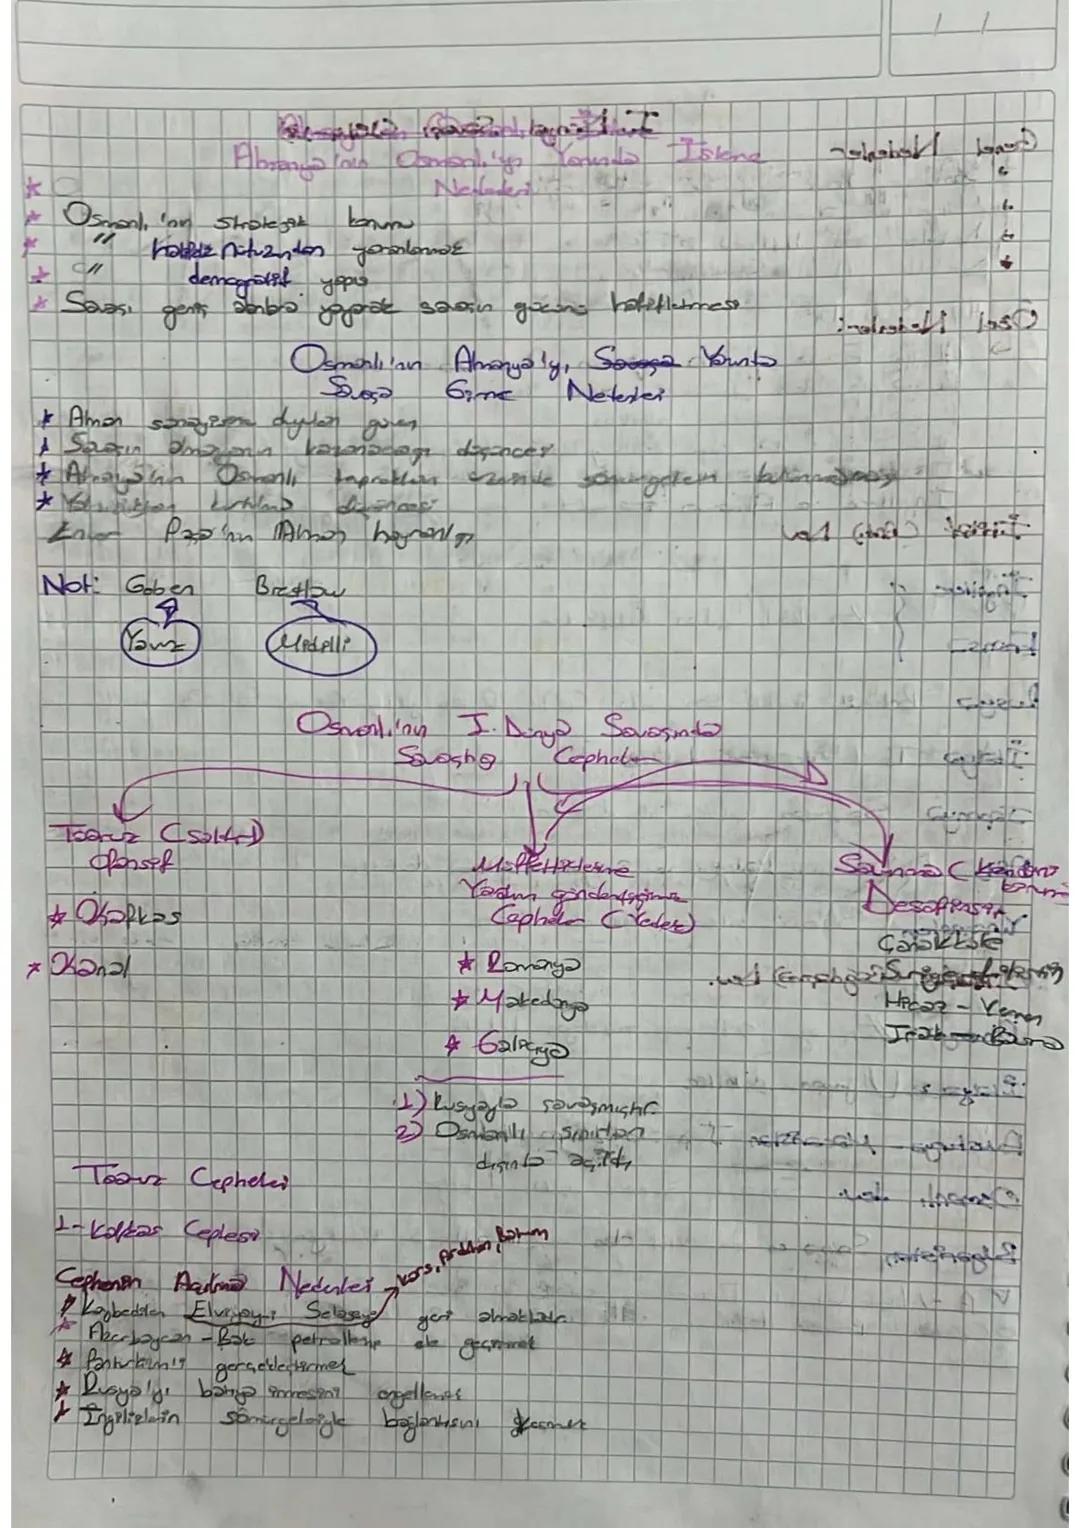 Almanya'nın Osmanlı'yı Yanında İsteme
Nedenleri
* Osmanlı'nın stratejik konumu
* " halifelik nüfuzundan yararlanmak
* " demografik yapısı
* Savaşı geniş alanlara yayarak savaşın gücünü hafifletmesi
Osmanlı'nın Almanya'yı Yanında
Savaşa Girme Nedenleri
* Alman sanayisine duyulan güven
* Savaşın Almanya'nın kazanacağı düşüncesi
* Almanya'nın Osmanlı toprakları üzerinde sömürgelerin bulunmaması
* Yalnızlıktan kurtulma düşüncesi
Enver Paşa'nın Alman hayranlığı
Not: Goben Breslaw
Yavuz Midilli
Osmanlı'nın I. Dünya Savaşında
Savaştığı Cepheler
Taarruz (saldırı)
Ofansif
* Kafkas
* Kanal
Müttefiklerine
Yardım gönderdiğimiz
Cepheler (Yeder)
* Romanya
* Makedonya
* Galiçya
1) Rusyayla savaşmıştır
2) Osmanlı sınırları
dışında açıldı
Savunma (kendini
koruma)
Çanakkale
Hicaz - Yemen
Irak - Basra
Taarruz Cepheleri
1- Kafkas Cephesi
Cephenin Açılma Nedenleri → Kars, Ardahan, Batum
* Kaybedilen Elviyeyi Selaseyi geri almaktadır
* Azerbaycan - Bakü petrollerini ele geçirmek
* Panturkizmi gerçekleştirmek
* Rusya'yı batıya inmesini engellemek
* İngilizlerin sömürgeleriyle bağlantısını kesmek